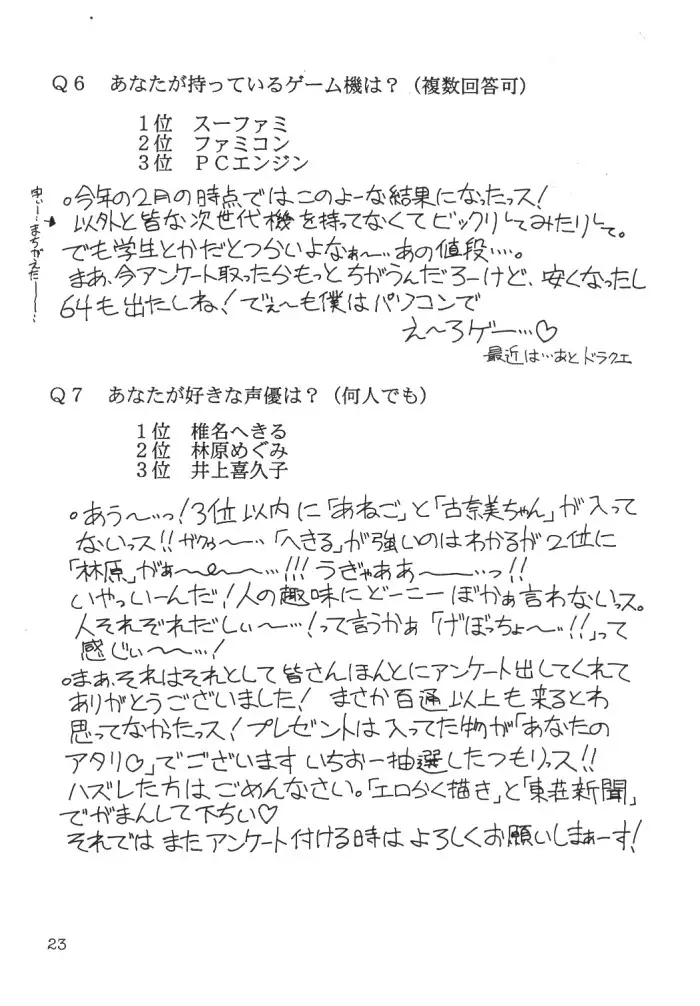 Q6　あなたが持っているゲーム機は？（複数回答可）
1位　スーファミ
2位　ファミコン
3位　PCエンジン
。今年の2月の時点ではこのよーな結果になったっス！
以外と皆な次世代機を持ってなくてビックリしてみたりして。
まちがえたー…
でも学生とかだとつらいよなぁ〜…あの値段…。
まあ、今アンケート取ったらもっとちがうんだろーけど、安くなったし
64も出たしね！でぇ〜も僕はパソコンで
え〜ろゲー…♡
最近は…あとドラクエ
Q7　あなたが好きな声優は？（何人でも）
1位　椎名へきる
2位　林原めぐみ
3位　井上喜久子
。あう〜…っ！3位以内に「あねご」と「古奈美ちゃん」が入って
ないっス!!ガクゥ〜…「へきる」が強いのはわかるが2位に
「林原」がぁ〜〜〜…!!!うぎゃああ〜…っ!!
いやっいーんだ！人の趣味にどーこーぼかぁ言わないっス。
人それぞれだしぃ〜…！って言うかぁ「げぼっちょ〜…!!」って
感じぃ〜…！
。まぁ、それはそれとして皆さんほんとにアンケート出してくれて
ありがとうございました！まさか百通以上も来るとわ
思ってなかったっス！プレゼントは入ってた物が「あなたの
アタリ♡」でございますいちおー抽選したつもりっス!!
ハズレた方はごめんなさい。「エロらく描き」と「東荘新聞」
でがまんして下ちい♡
それではまたアンケート付ける時はよろしくお願いしまぁーす！
23